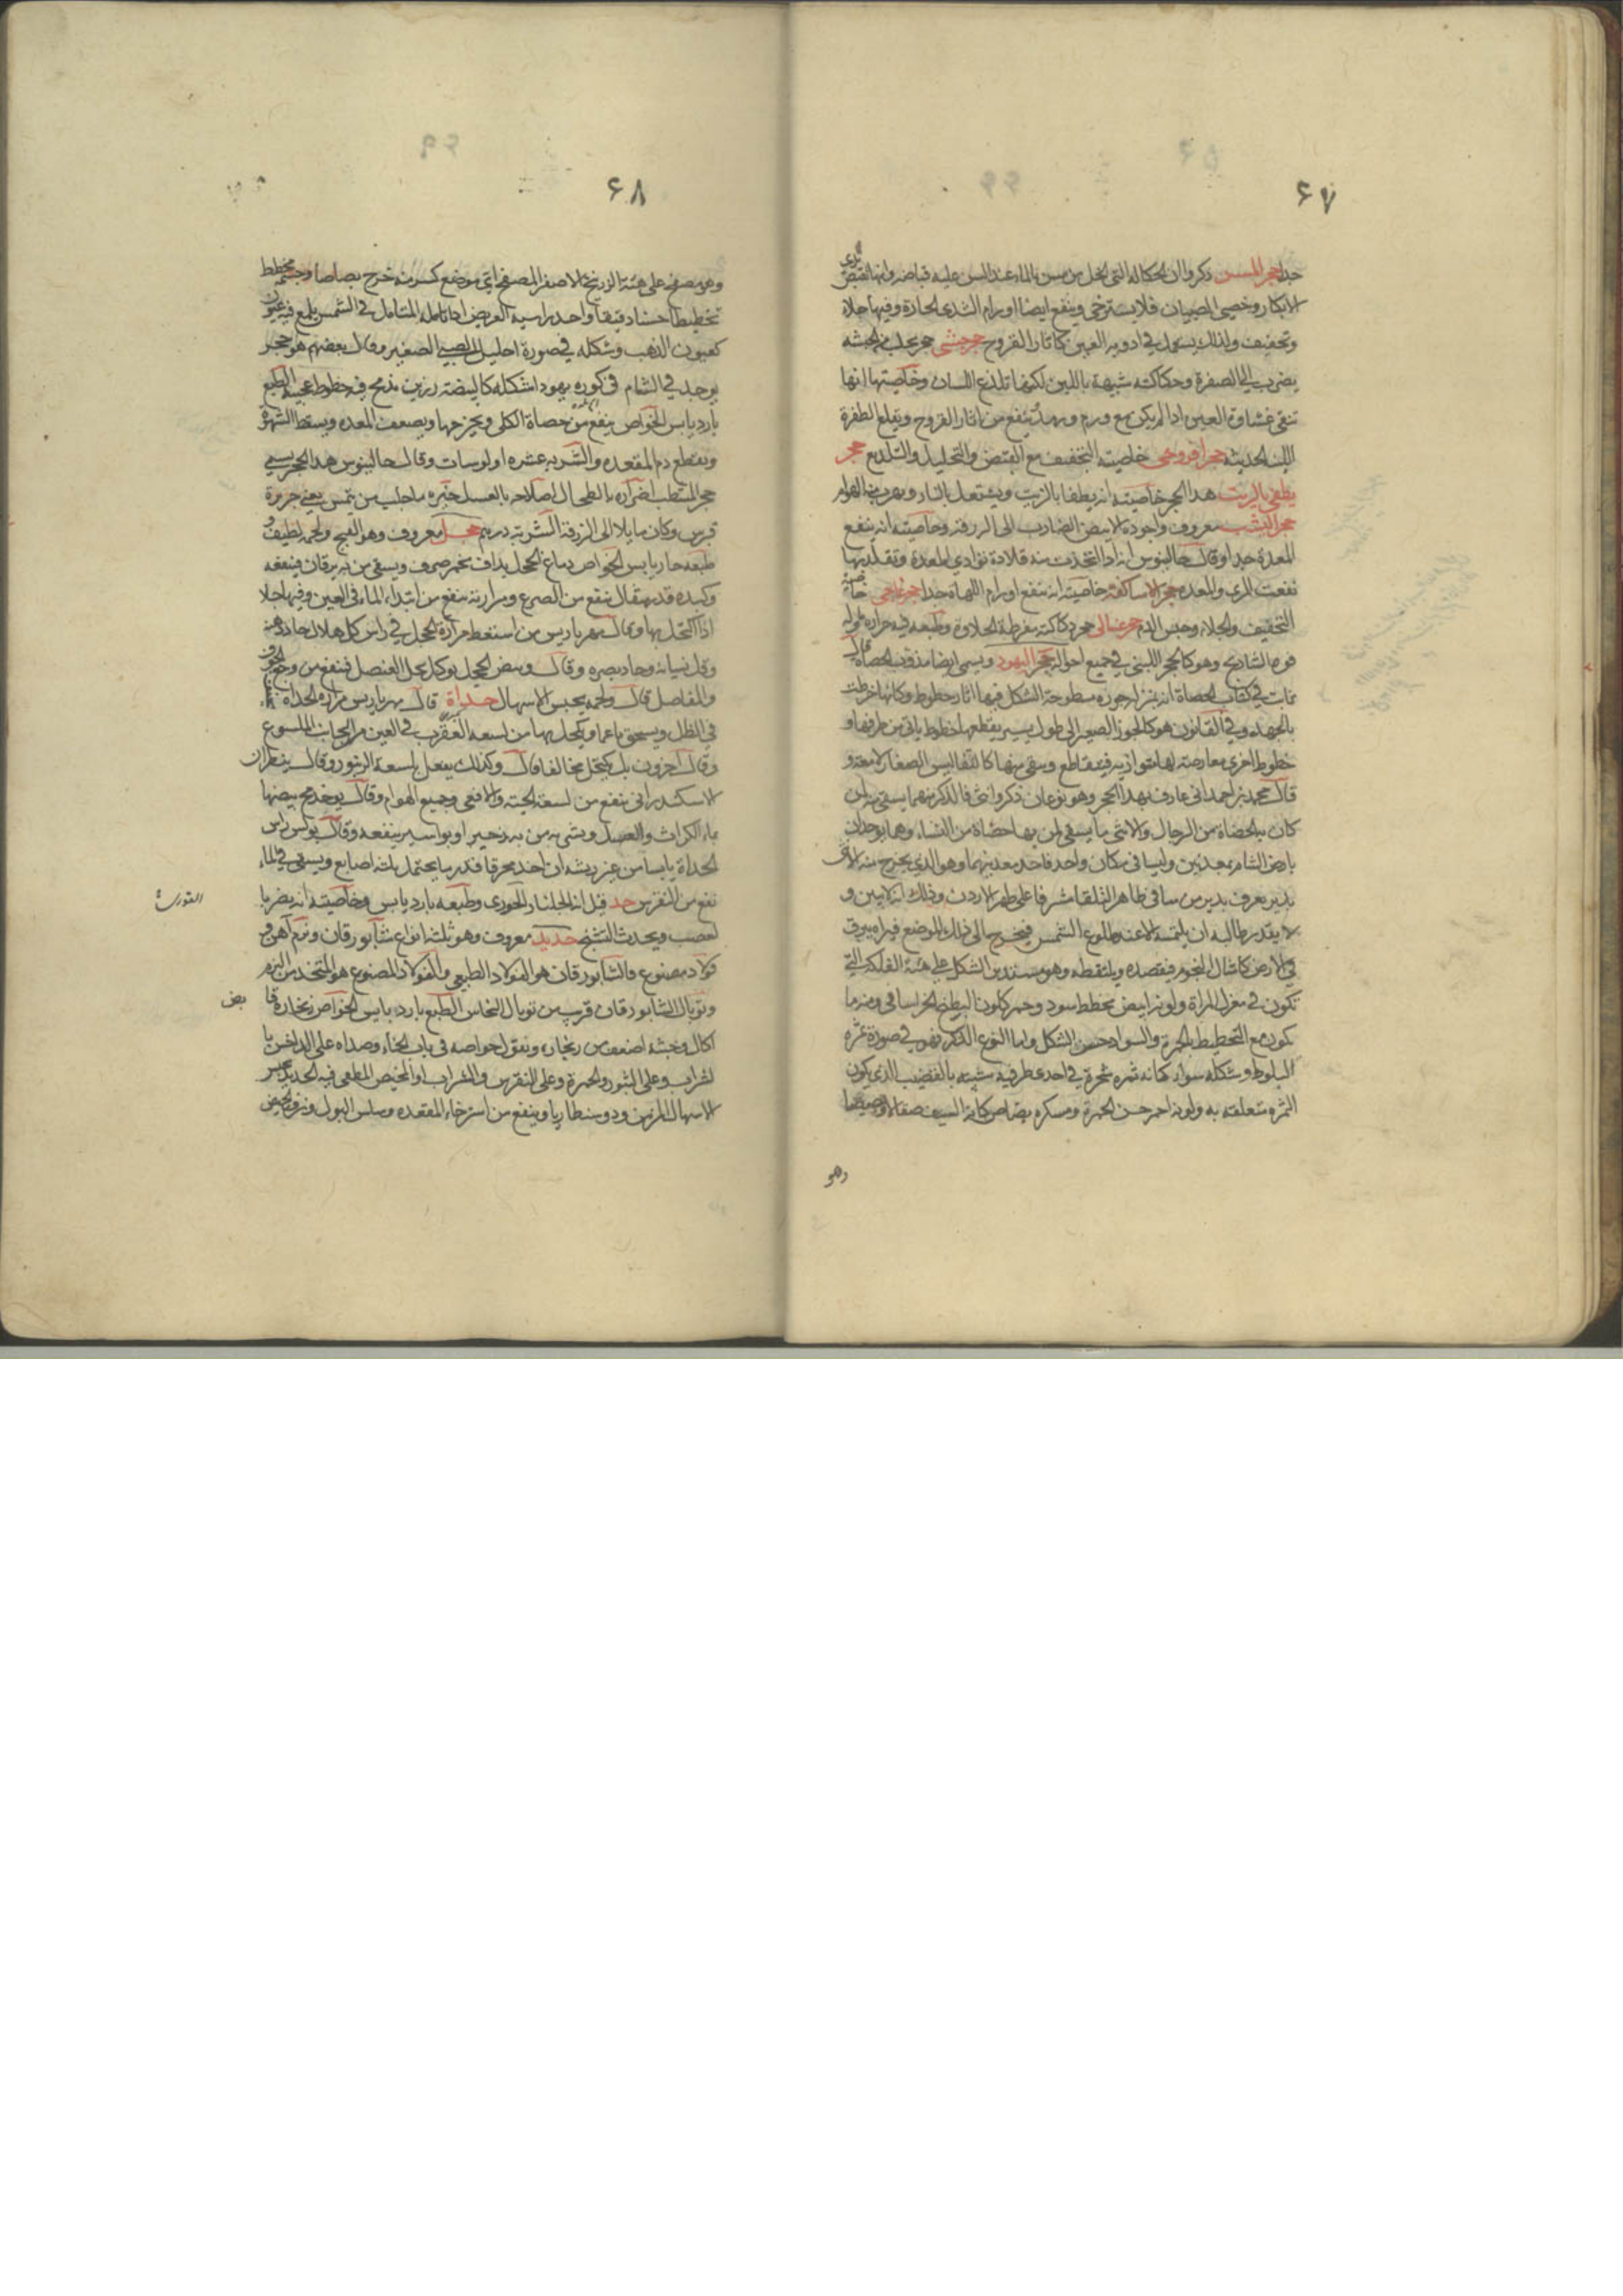 ۶۷
جدا حجر المسن ذكروا ان الحكاكة التي تنحل من مسن بالماء عند المسن عليه قباضه وانها تقبض ثدي
الابكار وخصى الصبيان فلا يسترخى وينفع ايضا اورام الثدي الحادة وفيها جلاء
وتجفيف ولذلك يستعمل في ادوية العين كاثار القروح حجر حبشى حجر يجلب من الحبشه
يضرب الى الصفرة وحكاكته شبيهة باللبن لكنها تلذع اللسان وخاصيتها انها
تنقى غشاوة العين اذا لم يكن مع ورم وبهذا ينفع من اثار القروح ويقلع الظفرة
اللينة الحديثه حجر افروحى خاصيته التجفيف مع القبض والتحليل والتلذيع حجر
يطفى بالزيت هذا الحجر خاصيته انه يطفا بالزيت ويشتعل بالنار ويهرب منه الهوام
حجر اليشب معروف واجوده الابيض الضارب الى الزرقه وخاصيته انه ينفع
المعدة جدا وقال جالينوس انه اذا اتخذت منه قلادة توازى المعدة وتقلد بها
نفعت المرى والمعده حجر الاساكفه خاصيته انه ينفع اورام اللهاة جدا حجر عاجى خاصيته
التجفيف والجلاء وحبس الدم حجر عسلى حجر حكاكته مفرطة الحلاوة وطبعه فيه حراره
قوه الشاذنج وهو كالحجر اللبنى في جميع احواله حجر اليهود ويسمى ايضا مذوب الحصاة قال
ثابت في كتاب الحصاة انه بمنزلة جوزه مسطوحة الشكل فيها اثار خطوط وكانها خرطت
بالجهد وفي القانون هو كالجوز الصغير الى طول يسير يقطعها خطوط ياتى من طرفها و
خطوط اخرى معارضة لها متوازيه فيتقاطع وبقى منها كالتفاليس الصغار لامعة و
قال محمد بن احمد انى عارف بهذا الحجر وهو نوعان ذكر وانثى فالذكر منهما يسقى من
كان به الحصاة من الرجال والانثى ما يسقى لمن بها حصاة من النساء وهما يوجدان
بارض الشام بمعدنين وليسا في مكان واحد فاحد معدنيهما وهو الذى يخرج منه الانثى
بدير يعرف بدير مرسا في ظاهر البلقا مشرفا على ظهر الاردن وذلك انه لا يبين و
لا يقدر طالبه ان يلتمسه الا عند طلوع الشمس فيخرج الى ذلك الموضع فيراه يبرق
في الارض كامثال النجوم فيقصده ويلتقطه وهو مستدير الشكل على هيئة الفلكة التي
تكون في مغزل المراة ولونه ابيض مخطط سود وحمر كلون البطيخ الخراسانى ومنه ما
يكون مع التخطيط بالحمرة والسواد حسن الشكل واما النوع الذكر فهو في صورة ثمرة
البلوط وشكله سواء كانه ثمره شجرة في احد طرفيه شبيه بالقضيب الذى يكون
الثمره متعلقه به ولونه احمر حسن الحمرة ومكسره بصاص كانه السيف صقالا وبصيصا
وهو
۶۸
وهو مصفح على هيئة الزرنيخ الاصفر المصفح اى موضع كسر منه خرج بصاصا وجسمه مخطط
تخطيطا حسنا دقيقا واحد راسيه العريض اذا تامله المتامل في الشمس يلمع فيه عيون
كعيون الذهب وشكله في صورة احليل الصبى الصغير وقال بعضهم هو حجر
يوجد في الشام في كوره يهودا شكله كالبيضة رزين مدمج فيه خطوط عجيبه الطبع
بارد يابس الخواص ينفع من حصاة الكلى ويخرجها ويضعف المعده ويسقط الشهوة
ويقطع دم المقعده والشربه عشره اولوسات وقال جالينوس هذا الحجر يسمى
حجر المسطب اضراره بالطحال اصلاحه بالعسل خيره ما جلب من جزيرة
قبرس وكان مايلا الى الزرقه الشربه درهم حجل معروف وهو القبج ولحمه لطيف و
طبعه حار يابس الخواص دماغ الحجل يداف بخمر صرف ويسقى من به يرقان فينفعه
وكبده قدر مثقال ينفع من الصرع ومرارته ينفع من ابتداء الماء في العين وفيها جلاء
اذا اكتحل بها وقال مهرياريس من استعط مرارة الحجل في راس كل هلال جاد ذهنه
وقل نسيانه وحاد بصره وقال وبيض الحجل يوكل بخل العنصل فينفع من وجع الجوف
والمفاصل قال ولحمه يحبس الاسهال حداة قال مهرياريس مرارة الحداة
في الظل ويسحق ناعما ويكحل بها من لسعه العقرب في العين من الجانب الملسوع
وقال اخرون بل يكتحل مخالفا قال وكذلك يفعل بلسعة الزنبور وقال
الاسكندرانى ينفع من لسعة الحية والافعى وجميع الهوام وقال يوخذ مح بيضها
بماء الكراث والعسل ويشربه من به زحير او بواسير ينفعه وقال بولس راس
الحداة يابسا من غير ريشه ان اخذ محرقا قدر ما يحتمل ثلثة اصابع ويسقى في الماء
نفع من النقرس حد قيل انه الجلنار الجورى وطبعه بارد يابس وخاصيته انه يضر با
لعصب ويحدث التشنج حديد معروف وهو ثلثه انواع شابورقان ونرم آهن و
فولاد مصنوع فالشابورقان هو الفولاد الطبيعي والفولاد المصنوع هو المتخذ من النرم
وتوبال الشابورقان قريب من توبال النحاس الطبع بارد يابس الخواص زنجاره قا
اكال وخبثه اضعف من زنجاره ونقول خواصه في باب الخاء وصداه على الداخس با
لشراب وعلى البثور والحمرة وعلى النقرس والشراب او المخيض المطفى فيه الحديد يحبس
الاسهال المزمن ودوسنطاريا وينفع من استرخاء المقعده وسلس البول ونزف الحيض
بض